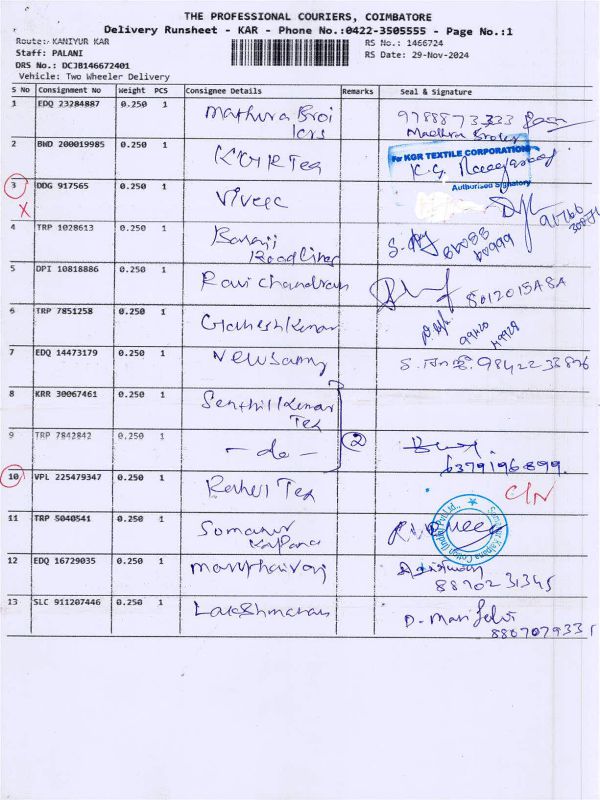 THE PROFESSIONAL COURIERS, COIMBATORE
Delivery Runsheet - KAR - Phone No.:0422-3505555 - Page No.:1
Route:- KANIYUR KAR
RS No.: 1466724
Staff: PALANI
RS Date: 29-Nov-2024
DRS No.: DCJB146672401
Vehicle: Two Wheeler Delivery
S No Consignment No Weight PCS Consignee Details Remarks Seal & Signature
1 EDQ 23284887 0.250 1 Mathura Broi lers 9788873333
Madhura Broiler
2 BWD 200019985 0.250 1 KGR Tex
For KGR TEXTILE CORPORATION
Authorised Signatory
3 DDG 917565 0.250 1 Viveec
X
4 TRP 1028613 0.250 1 Balaji Roadlines
5 DPI 10818886 0.250 1 Ravi chandran
6 TRP 7851258 0.250 1 Ganesh Kumar
7 EDQ 14473179 0.250 1 Newsamy
8 KRR 30067461 0.250 1 Senthil Kumar Tex
9 TRP 7842842 0.250 1 - do - 2
6379196899.
10 VPL 225479347 0.250 1 Rahul Tex C/N
11 TRP 5040541 0.250 1 Somanur Kalpana
12 EDQ 16729035 0.250 1 Maruthairaj
8870231345
13 SLC 911207446 0.250 1 Lakshmanan D. Mari Selvi
8807079331